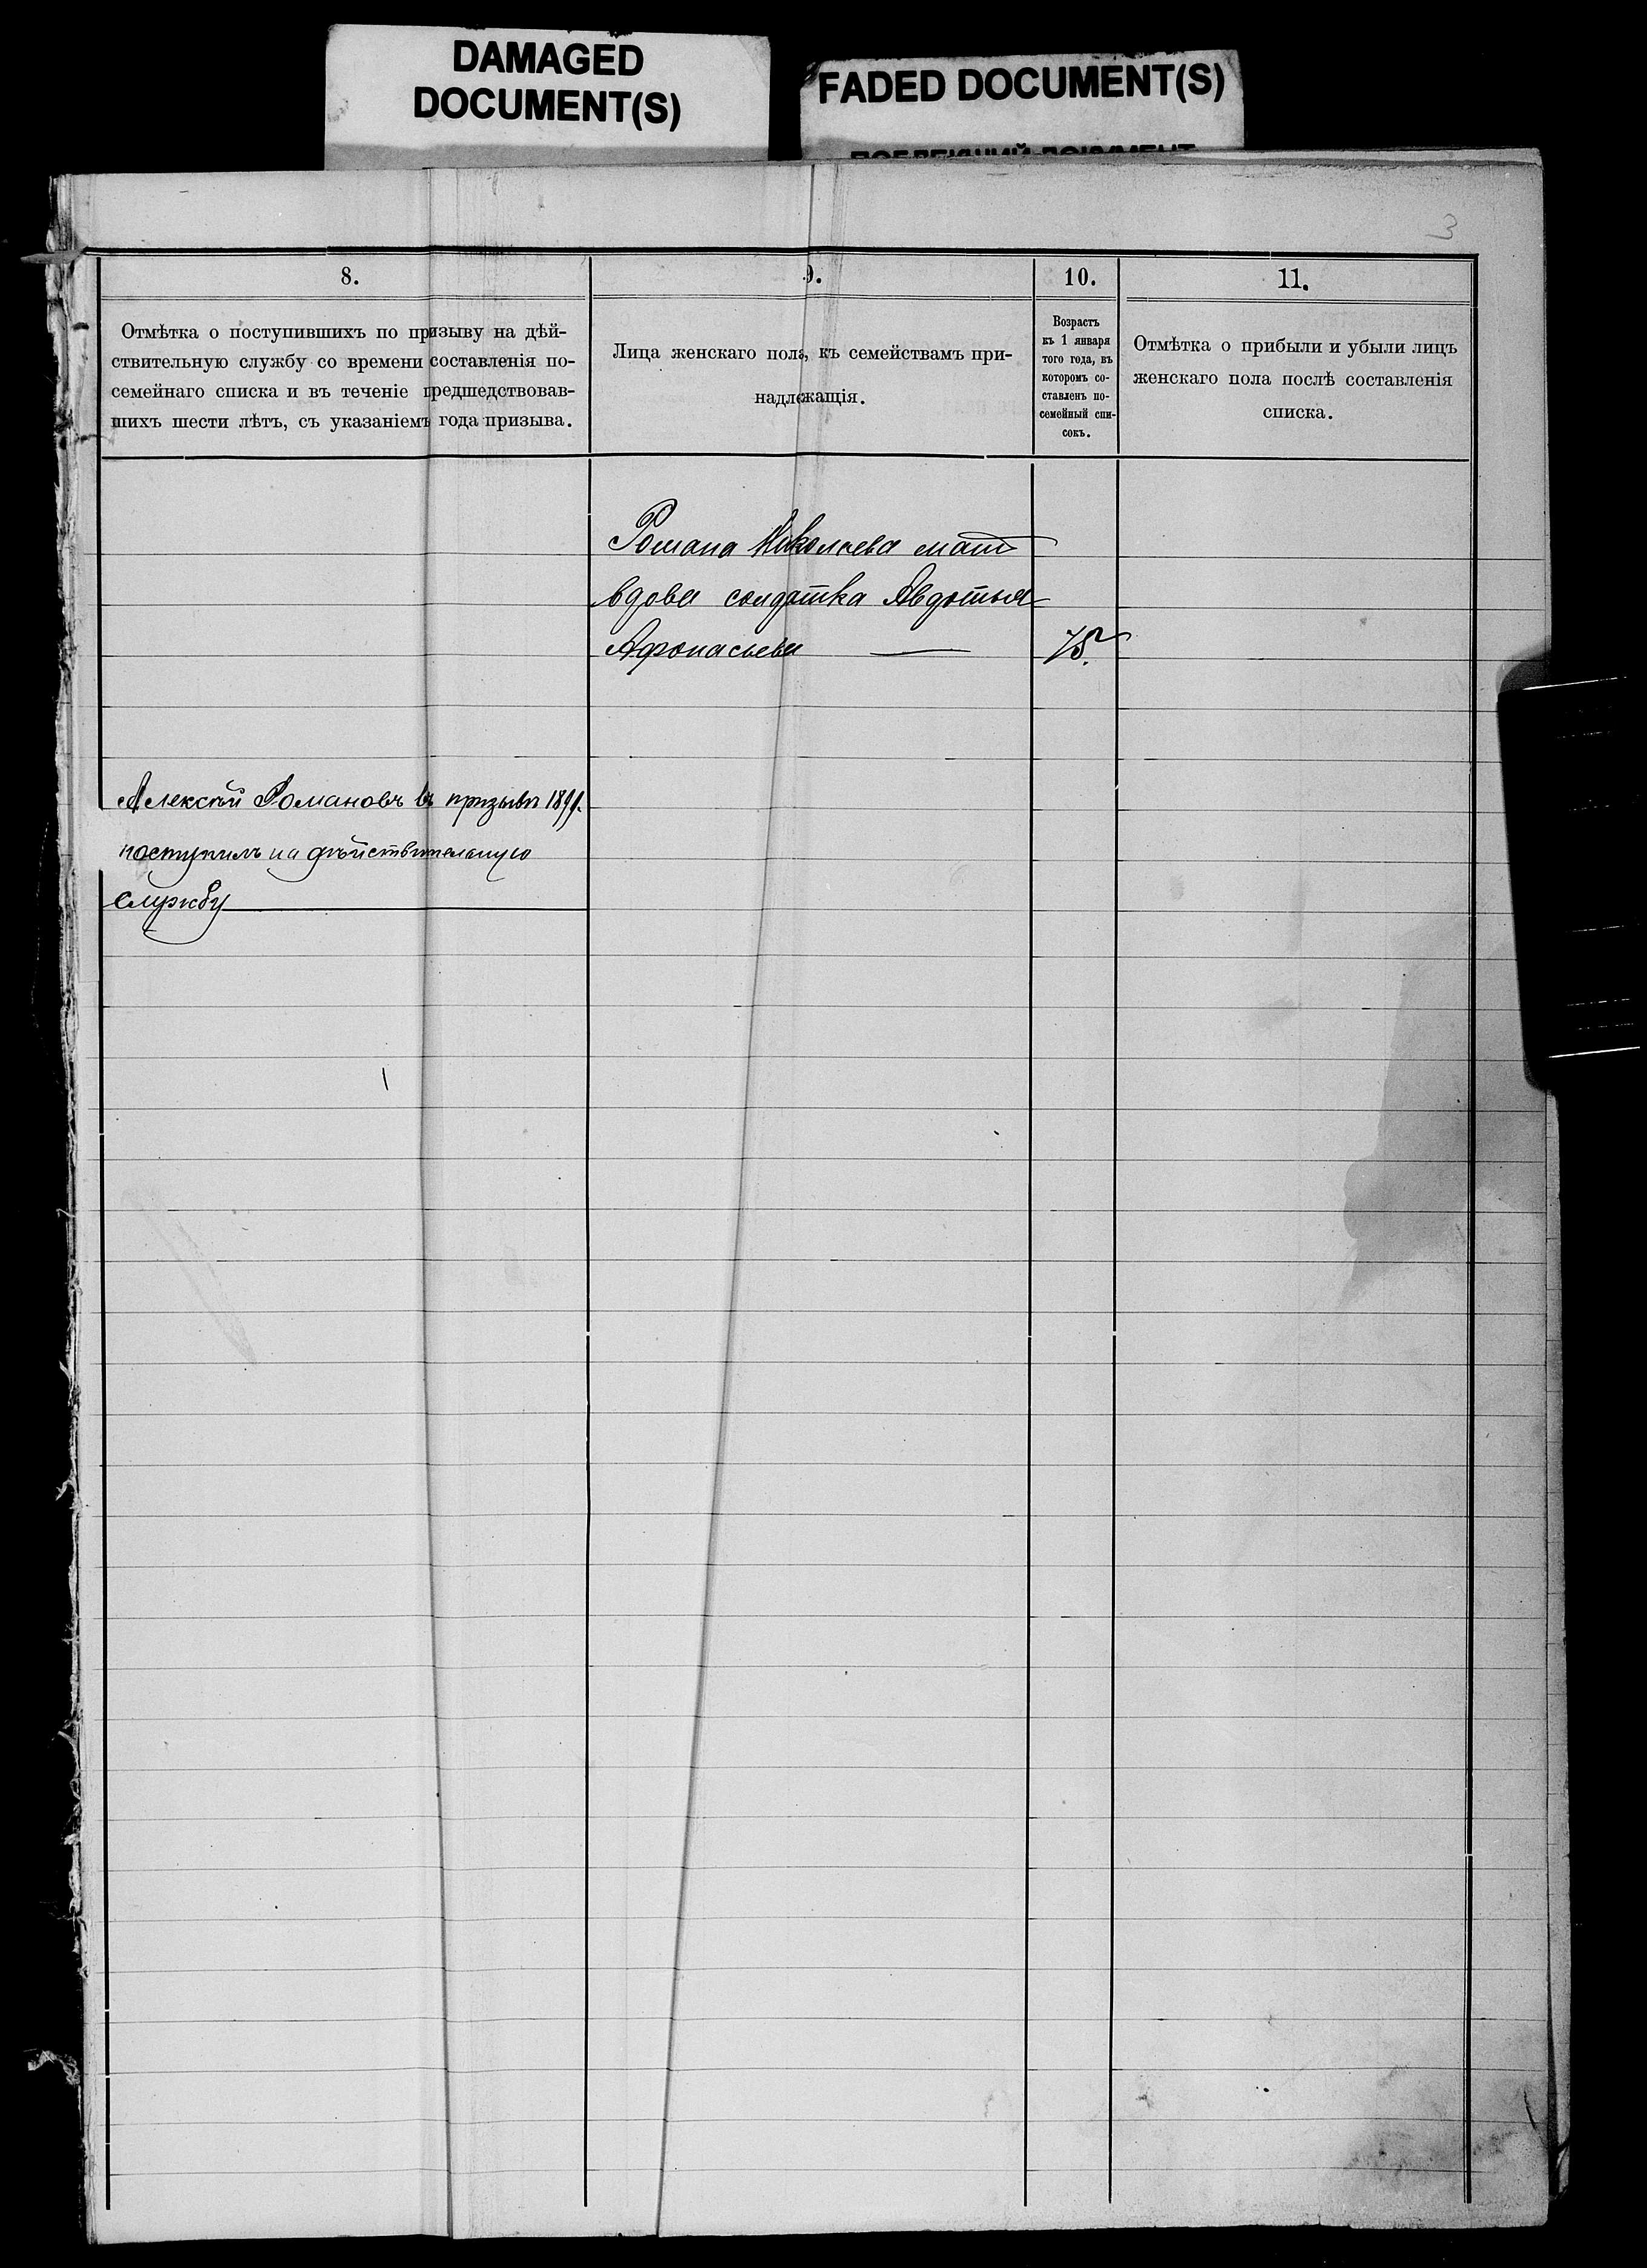 DAMAGED
DOCUMENT(S)
FADED DOCUMENT(S)
3
8.
Отмѣтка о поступившихъ по призыву на дѣй-
ствительную службу со времени составленія по-
семейнаго списка и въ теченіе предшедствовав-
шихъ шести лѣтъ, съ указаніемъ года призыва.
9.
Лица женскаго пола, къ семействамъ при-
надлежащія.
10.
Возрастъ
къ 1 января
того года, въ
которомъ со-
ставленъ по-
семейный спи-
сокъ.
11.
Отмѣтка о прибыли и убыли лицъ
женскаго пола послѣ составленія
списка.
Романа Николаева мать
вдова солдатка Авдотья
Афонасьева — 75.
Алексѣй Романовъ въ призывъ
поступилъ на дѣйствительную
службу